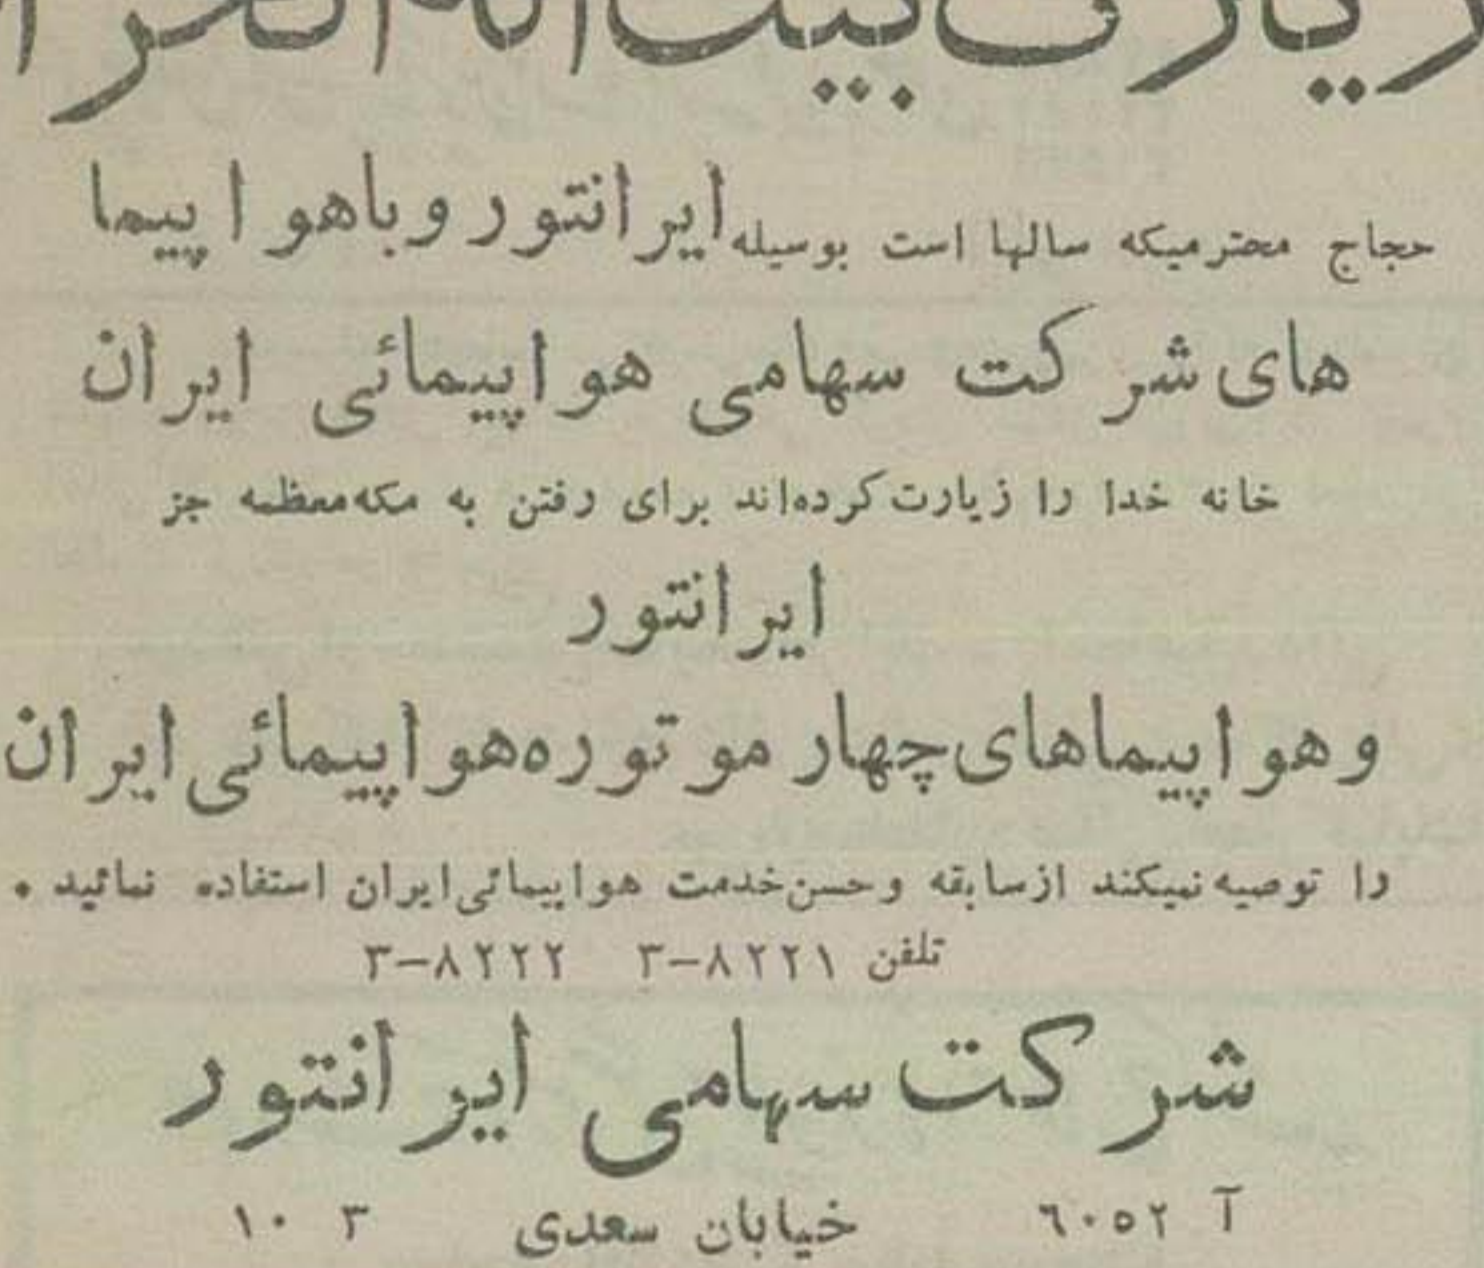 زیارت بیت‌الله الحرام
حجاج محترمیکه سالها است بوسیله ایرانتور و باهواپیما
های شرکت سهامی هواپیمائی ایران
خانه خدا را زیارت کرده‌اند برای رفتن به مکه معظمه جز
ایرانتور
و هواپیماهای چهار موتوره هواپیمائی ایران
را توصیه نمیکند از سابقه و حسن خدمت هواپیمائی ایران استفاده نمائید .
تلفن ۸۲۲۱-۳ ۸۲۲۲-۳
شرکت سهامی ایرانتور
آ ۶۰۵۲ خیابان سعدی ۳ ۱۰